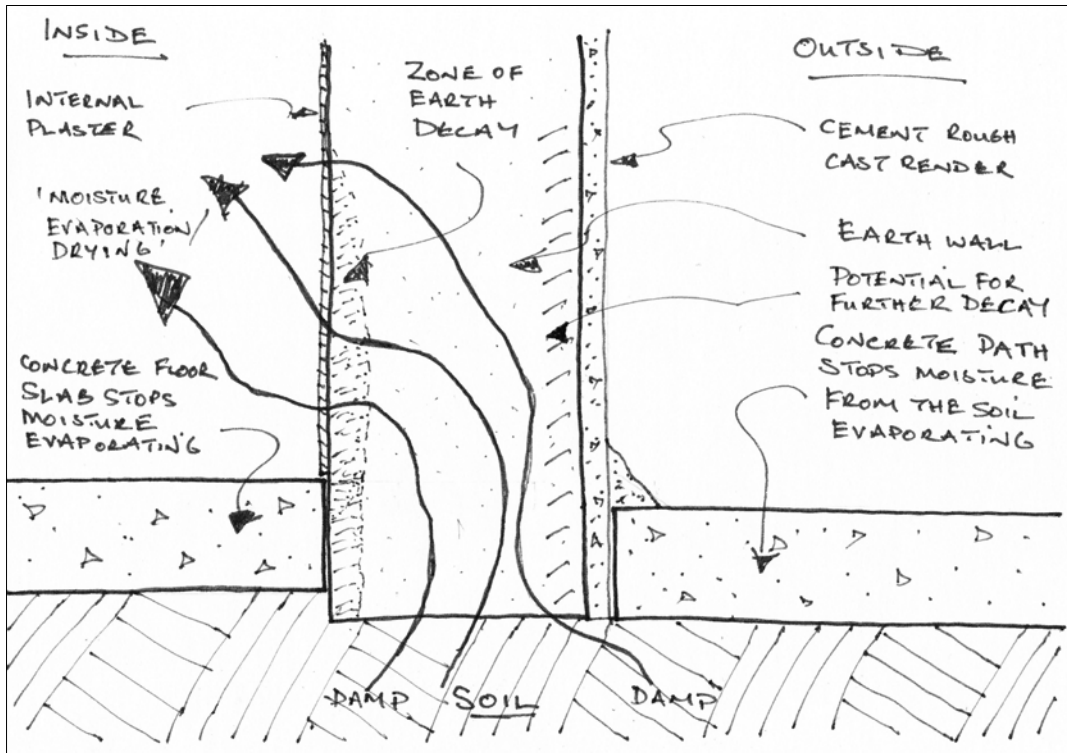 INSIDE
INTERNAL
PLASTER
'MOISTURE
EVAPORATION
DRYING'
CONCRETE FLOOR
SLAB STOPS
MOISTURE
EVAPORATING
ZONE OF
EARTH
DECAY
OUTSIDE
CEMENT ROUGH
CAST RENDER
EARTH WALL
POTENTIAL FOR
FURTHER DECAY
CONCRETE PATH
STOPS MOISTURE
FROM THE SOIL
EVAPORATING
DAMP SOIL DAMP